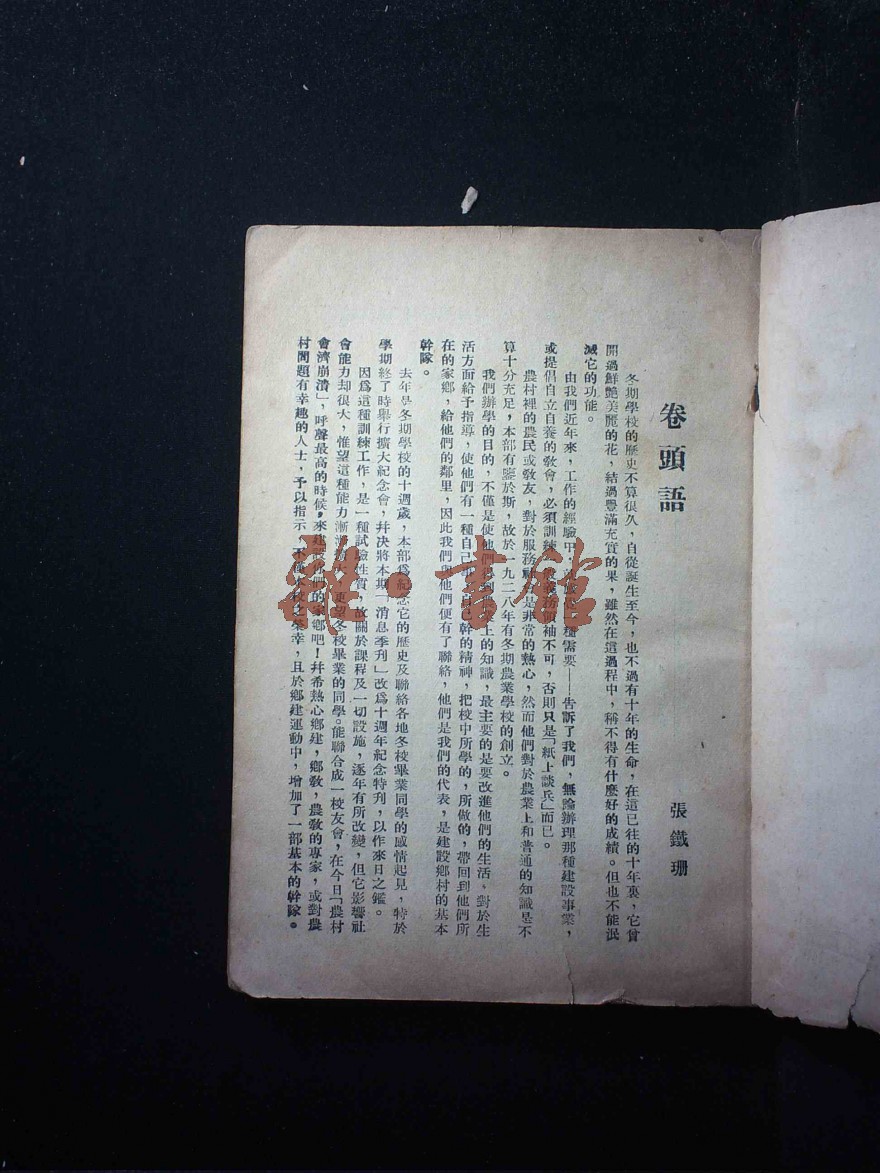 卷頭語
張鐵珊
冬期學校的歷史不算很久，自從誕生至今，也不過有十年的生命，在這已往的十年裏，它曾
開過鮮艷美麗的花，結過豐滿充實的果，雖然在這過程中，稱不得有什麼好的成績。但也不能泯
滅它的功能。
由我們近年來，工作的經驗中，一種需要——告訴了我們，無論辦理那種建設事業，
或提倡自立自養的教會，必須訓練義務領袖不可，否則只是「紙上談兵」而已。
農村裡的農民或敎友，對於服務是非常的熱心，然而他們對於農業上和普通的知識是不
算十分充足，本部有鑒於斯，故於一九二八年有冬期農業學校的創立。
我們辦學的目的，不僅是使他們得到上的知識，最主要的是要改進他們的生活、對於生
活方面給予指導，使他們有一種自己自己幹的精神，把校中所學的，所做的，帶回到他們所
在的家鄉，給他們的鄰里，因此我們與他們便有了聯絡，他們是我們的代表，是建設鄉村的基本
幹隊。
去年是冬期學校的十週歲，本部為紀念它的歷史及聯絡各地冬校畢業同學的感情起見，特於
學期終了時舉行擴大紀念會，并决將本期「消息季刊」改爲十週年紀念特刊，以作來日之鑑。
因爲這種訓練工作，是一種試驗性質，故關於課程及一切設施，逐年有所改變，但它影響社
會能力却很大，惟望這種能力漸漸擴大，更望冬校畢業的同學。能聯合成一校友會，在今日「農村
會濟崩潰」，呼聲最高的時候，來建設他們的家鄉吧！幷希熱心鄉建，鄉敎，農敎的專家，或對農
村問題有幸趣的人士，予以指示，不僅本校之榮幸，且於鄉建運動中，增加了一部基本的幹隊。
雜·書館